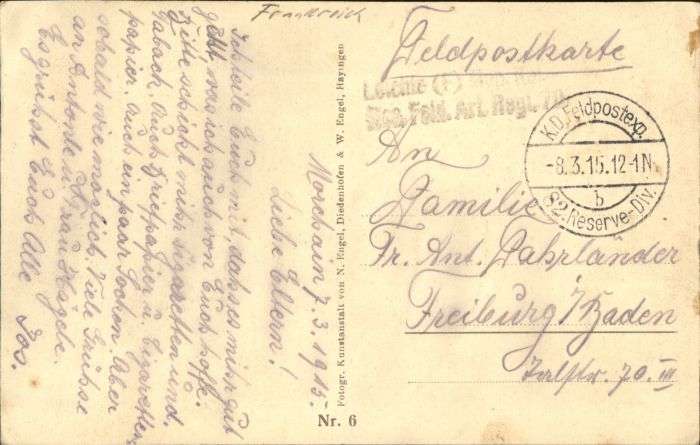 Frankreich
Feldpostkarte
Res. Feld. Art. Regt.
K.D. Feldpostexp.
-8.3.15.12-1N
b
82. Reserve-Div.
An
Familie
Fr. Ant. Fahrländer
Freiburg i/Baden
70 III
Morchain 7.3.1915.
Liebe Eltern!
Ich teile Euch mit, daß es mir gut
geht, was ich auch von Euch hoffe.
Bitte schickt mihr Zigaretten und
Taback. Auch Briefpapier u. Cigaretten-
papier. Auch ein paar Socken. Aber
sobald wie möglich. Viele Grüße
an u. Frau Hägele.
Es grüßt Euch Alle
Jos.
Photogr. Kunstanstalt von N. Engel, Diedenhofen & W. Engel, Hayingen
Nr. 6